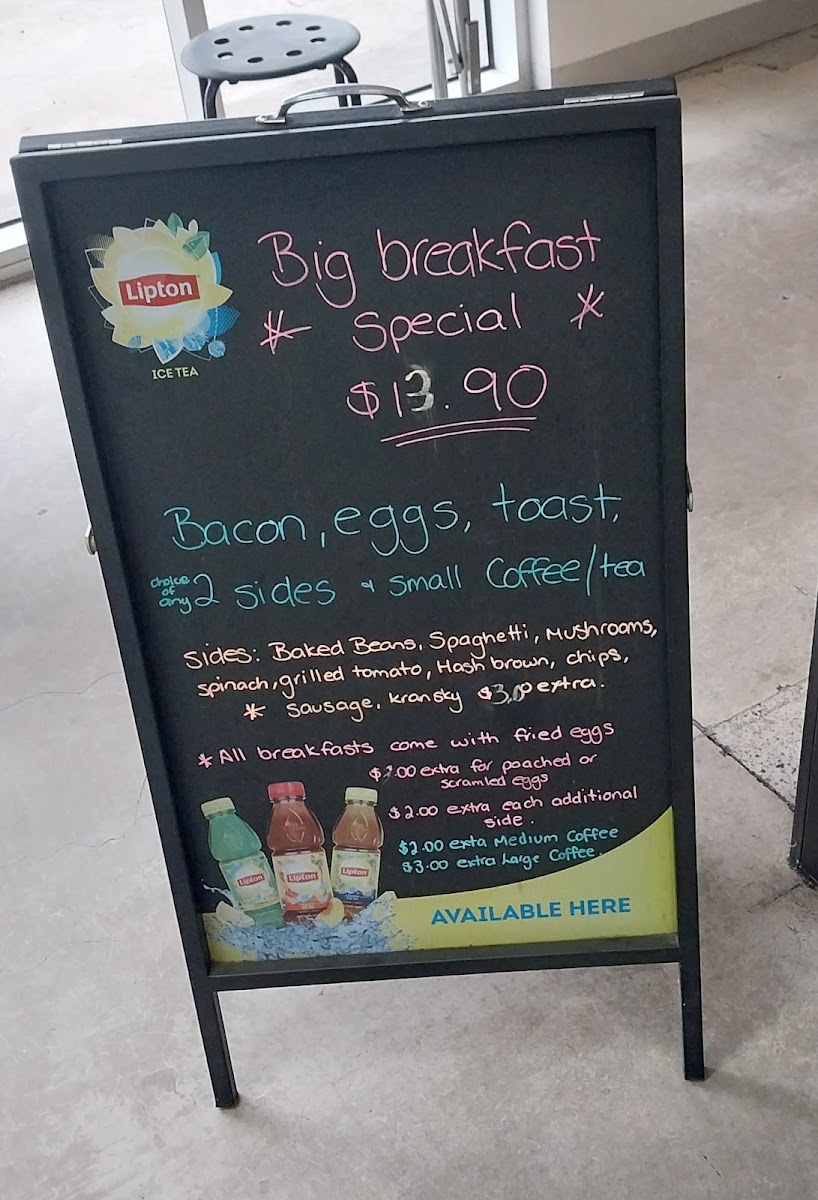 Lipton
ICE TEA
Big breakfast
* Special *
$13.90
Bacon, eggs, toast,
choice of any 2 sides & small Coffee/tea
Sides: Baked Beans, Spaghetti, Mushrooms,
spinach, grilled tomato, Hash brown, chips,
* Sausage, kransky $3.00 extra.
* All breakfasts come with fried eggs
.00 extra for poached or
scramled eggs
$2.00 extra each additional
side.
$2.00 exta Medium Coffee
$3.00 extra Large Coffee.
Lipton
Lipton
Lipton
AVAILABLE HERE